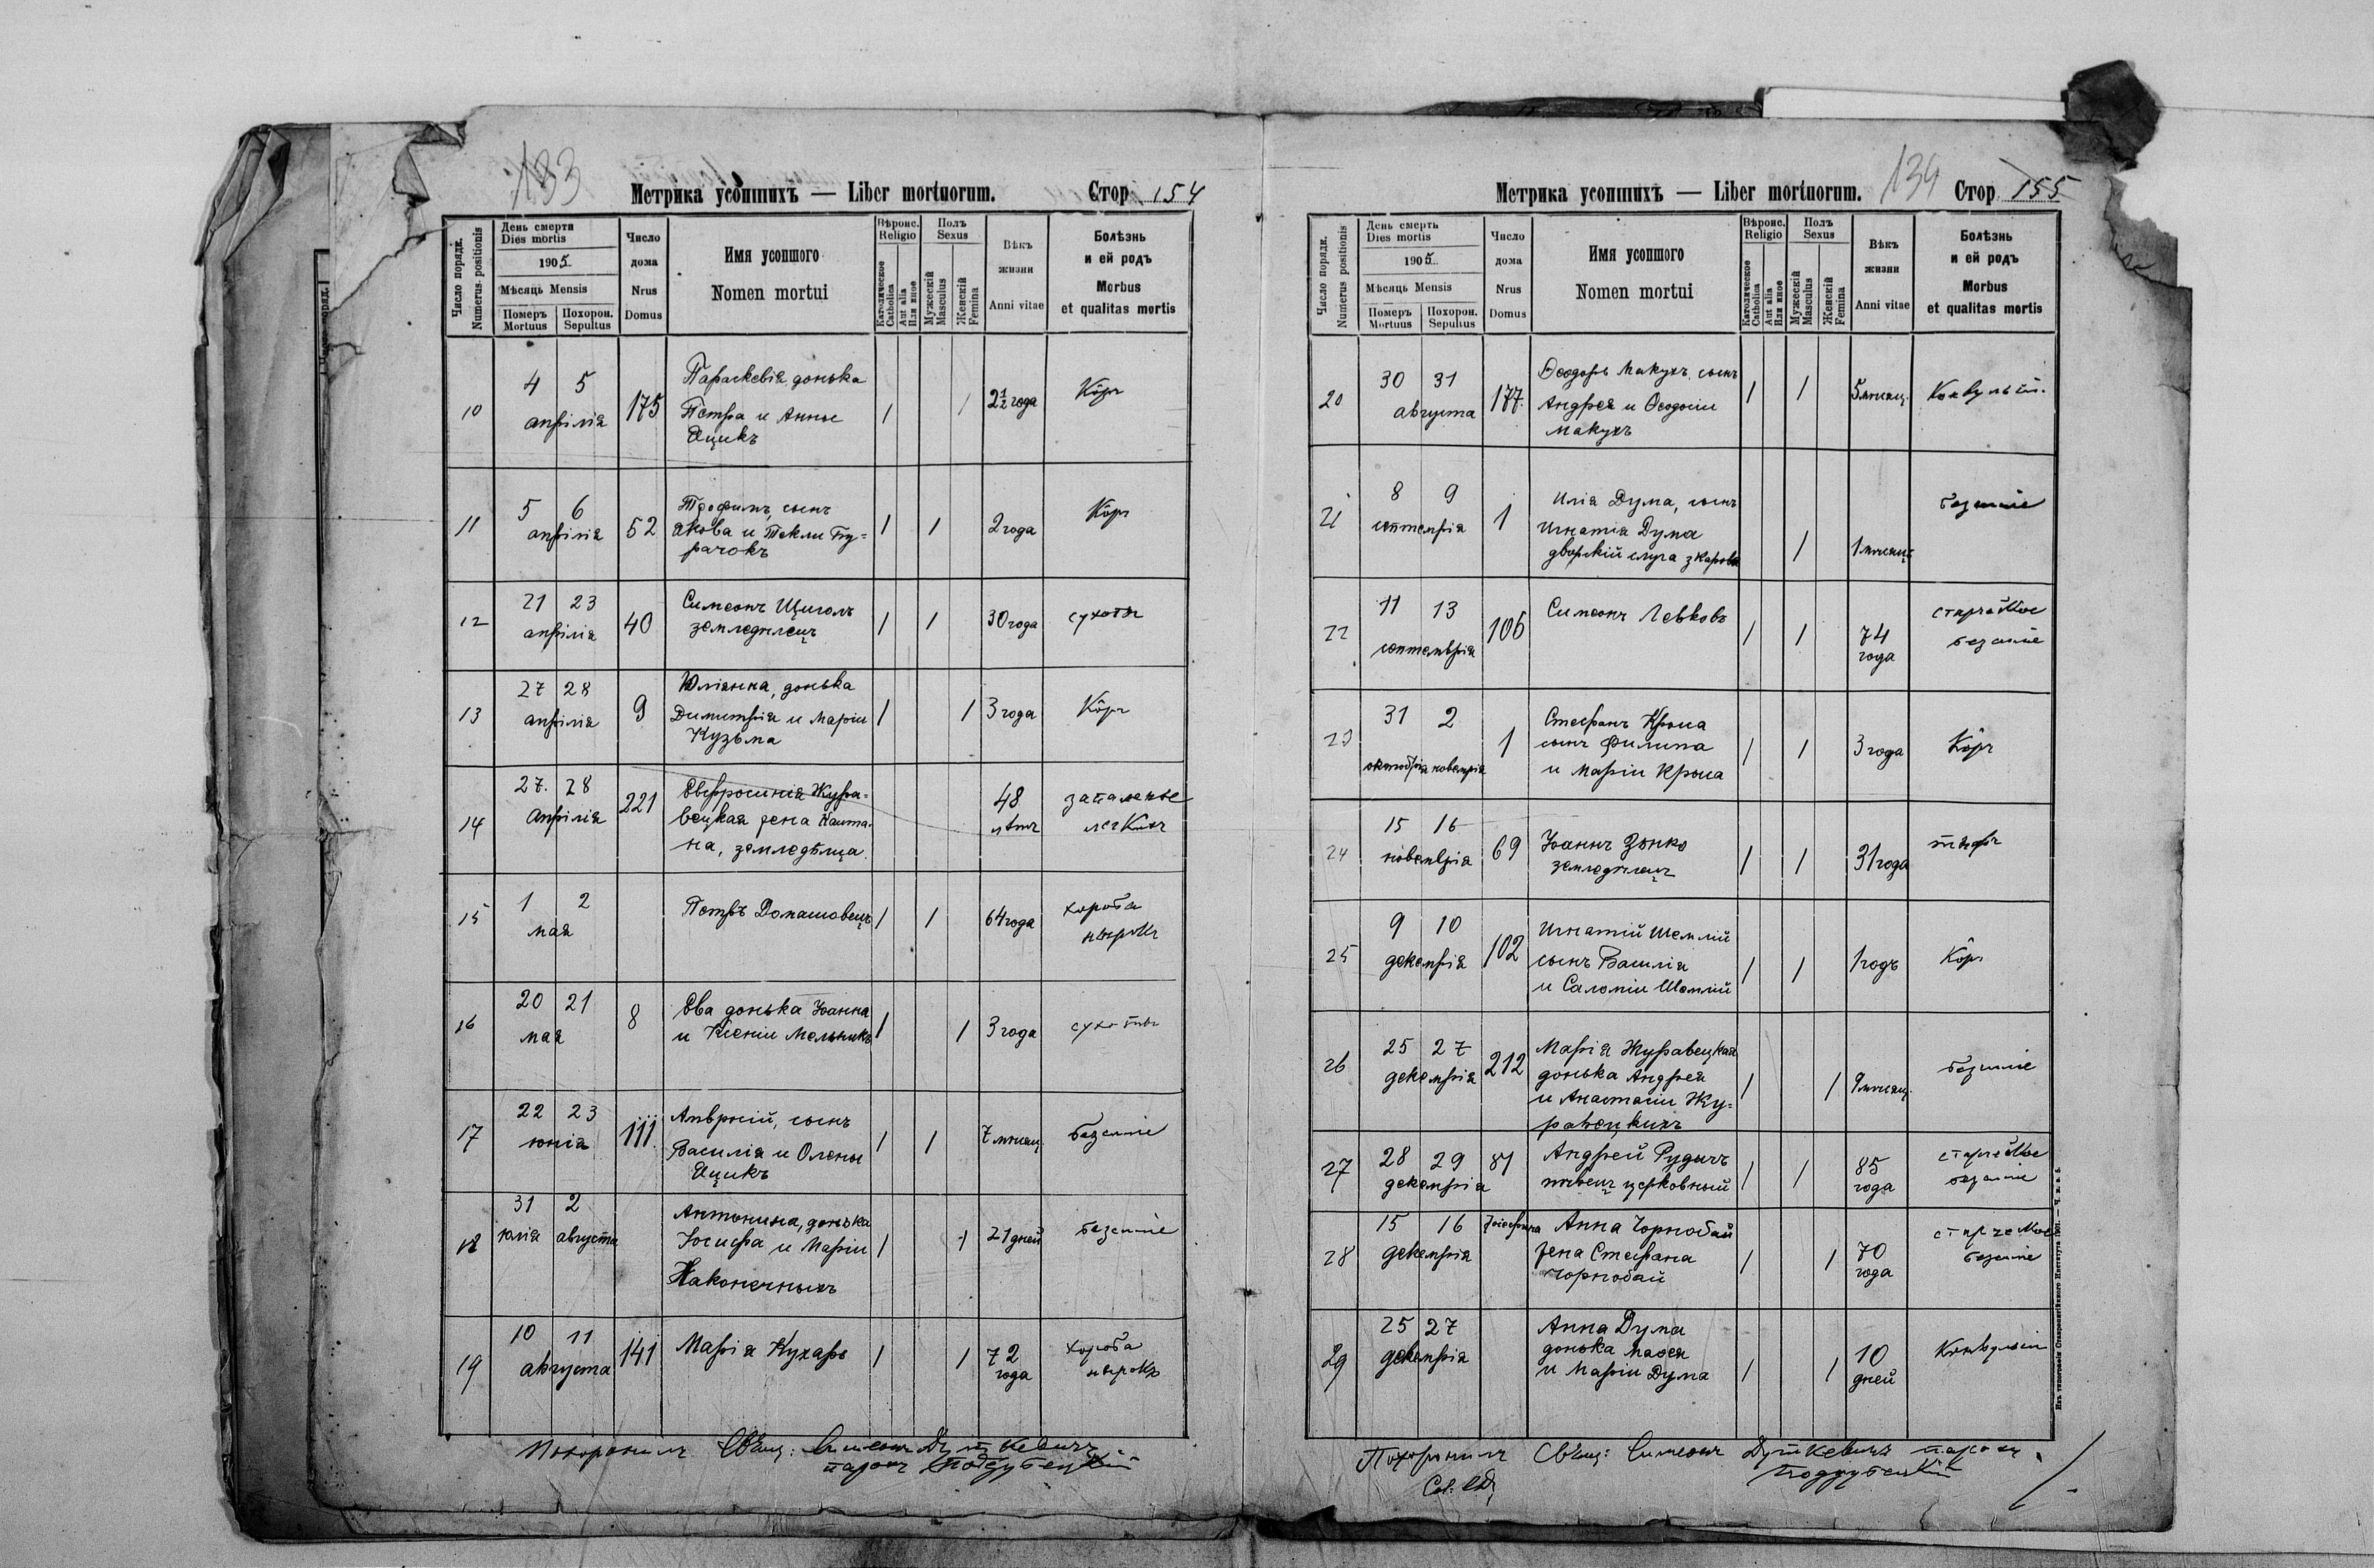 133
Метрика усопшихъ — Liber mortuorum. Стор. 154
Число порядк. Numerus positionis
День смерти Dies mortis
1905
Мѣсяць Mensis
Померъ Mortuus
Похорон. Sepultus
Число дома Nrus Domus
Имя усопшого
Nomen mortui
Вѣроис. Religio
Католическое Catholica
Aut alia Или иное
Полъ Sexus
Мужескій Masculus
Женскій Femina
Вѣкъ жизни Anni vitae
Болѣзнь и ей родъ
Morbus et qualitas mortis
10 4 5 апрѣлія 175 Параскевія донька 1 1 2½ года Кôръ
Петра и Анны
Яцикъ
11 5 6 апрѣлія 52 Трофимъ, сынъ 1 1 2 года Кôръ
Якова и Текли Бу-
рачокъ
12 21 23 апрѣлія 40 Симеонъ Щиголь 1 1 30 года сухоты
земледѣлецъ
13 27 28 апрѣлія 9 Юліянна, донька 1 1 3 года Кôръ
Димитрія и Маріи
Кузьма
14 27. 28 Апрѣлія 221 Евфросинія Жура- 48 лѣтъ запаленье
вецкая жена Каита- легкихъ
на, земледѣлца
15 1 2 мая Петръ Домашовецъ 1 1 64 года хороба
нырокъ
16 20 21 мая 8 Ева донька Іоанна 1 1 3 года сухоты
и Ксеніи Мельникъ
17 22 23 юнія 111 Аверкій, сынъ 1 1 7 мѣсяц. безсиліе
Василія и Олены
Яцикъ
18 31 2 юлія августа Антонина, донька 1 1 21 дней безсиліе
Іосифа и Маріи
Наконечныхъ
19 10 11 августа 141 Марія Кухаръ 1 1 72 года хороба
нырокъ
Похоронилъ Свящ: Симеонъ Дуткевичъ
парохъ Поддубецкій
Метрика усопшихъ — Liber mortuorum. 134 Стор. 155
Число порядк. Numerus positionis
День смерти Dies mortis
1905
Мѣсяць Mensis
Померъ Mortuus
Похорон. Sepultus
Число дома Nrus Domus
Имя усопшого
Nomen mortui
Вѣроис. Religio
Католическое Catholica
Aut alia Или иное
Полъ Sexus
Мужескій Masculus
Женскій Femina
Вѣкъ жизни Anni vitae
Болѣзнь и ей родъ
Morbus et qualitas mortis
20 30 31 августа 177 Ѳеодоръ Макухъ сынъ 1 1 5 мѣсяц.
Андрея и Ѳеодосіи
Макухъ
21 8 9 септемрія 1 Илія Дума, сынъ 1 1 мѣсяцъ безсиліе
Игнатія Дума
дворскій слуга з Карова
22 11 13 септемврія 106 Симеонъ Левковъ 1 1 74 года старческое
безсиліе
23 31 2 октобрія новемрія 1 Стефанъ Крыса 1 1 3 года Кôръ
сынъ Филипа
и Маріи Крыса
24 15 16 новемврія 69 Іоаннъ Зѣнко 1 1 31 года тифъ
земледѣлецъ
25 9 10 декемрія 102 Игнатій Шемлій 1 1 1 годъ Кôръ
сынъ Василія
и Саломіи Шемлій
26 25 27 декемрія 212 Марія Журавецкая 1 1 9 мѣсяц. безсиліе
донька Андрея
и Анастасіи Жу-
равецкихъ
27 28 29 декемрія 81 Андрей Рудычъ 1 1 85 года старческое
пѣвецъ церковный безсиліе
28 15 16 декемрія Анна Чорнобай 1 1 70 года старческое
жена Стефана безсиліе
Чорнобай
29 25 27 декемрія Анна Дума 1 1 10 дней Конвульсіи
донька Матея
и Маріи Дума
Похоронилъ Свящ: Симеонъ Дуткевичъ парохъ
Поддубецкій